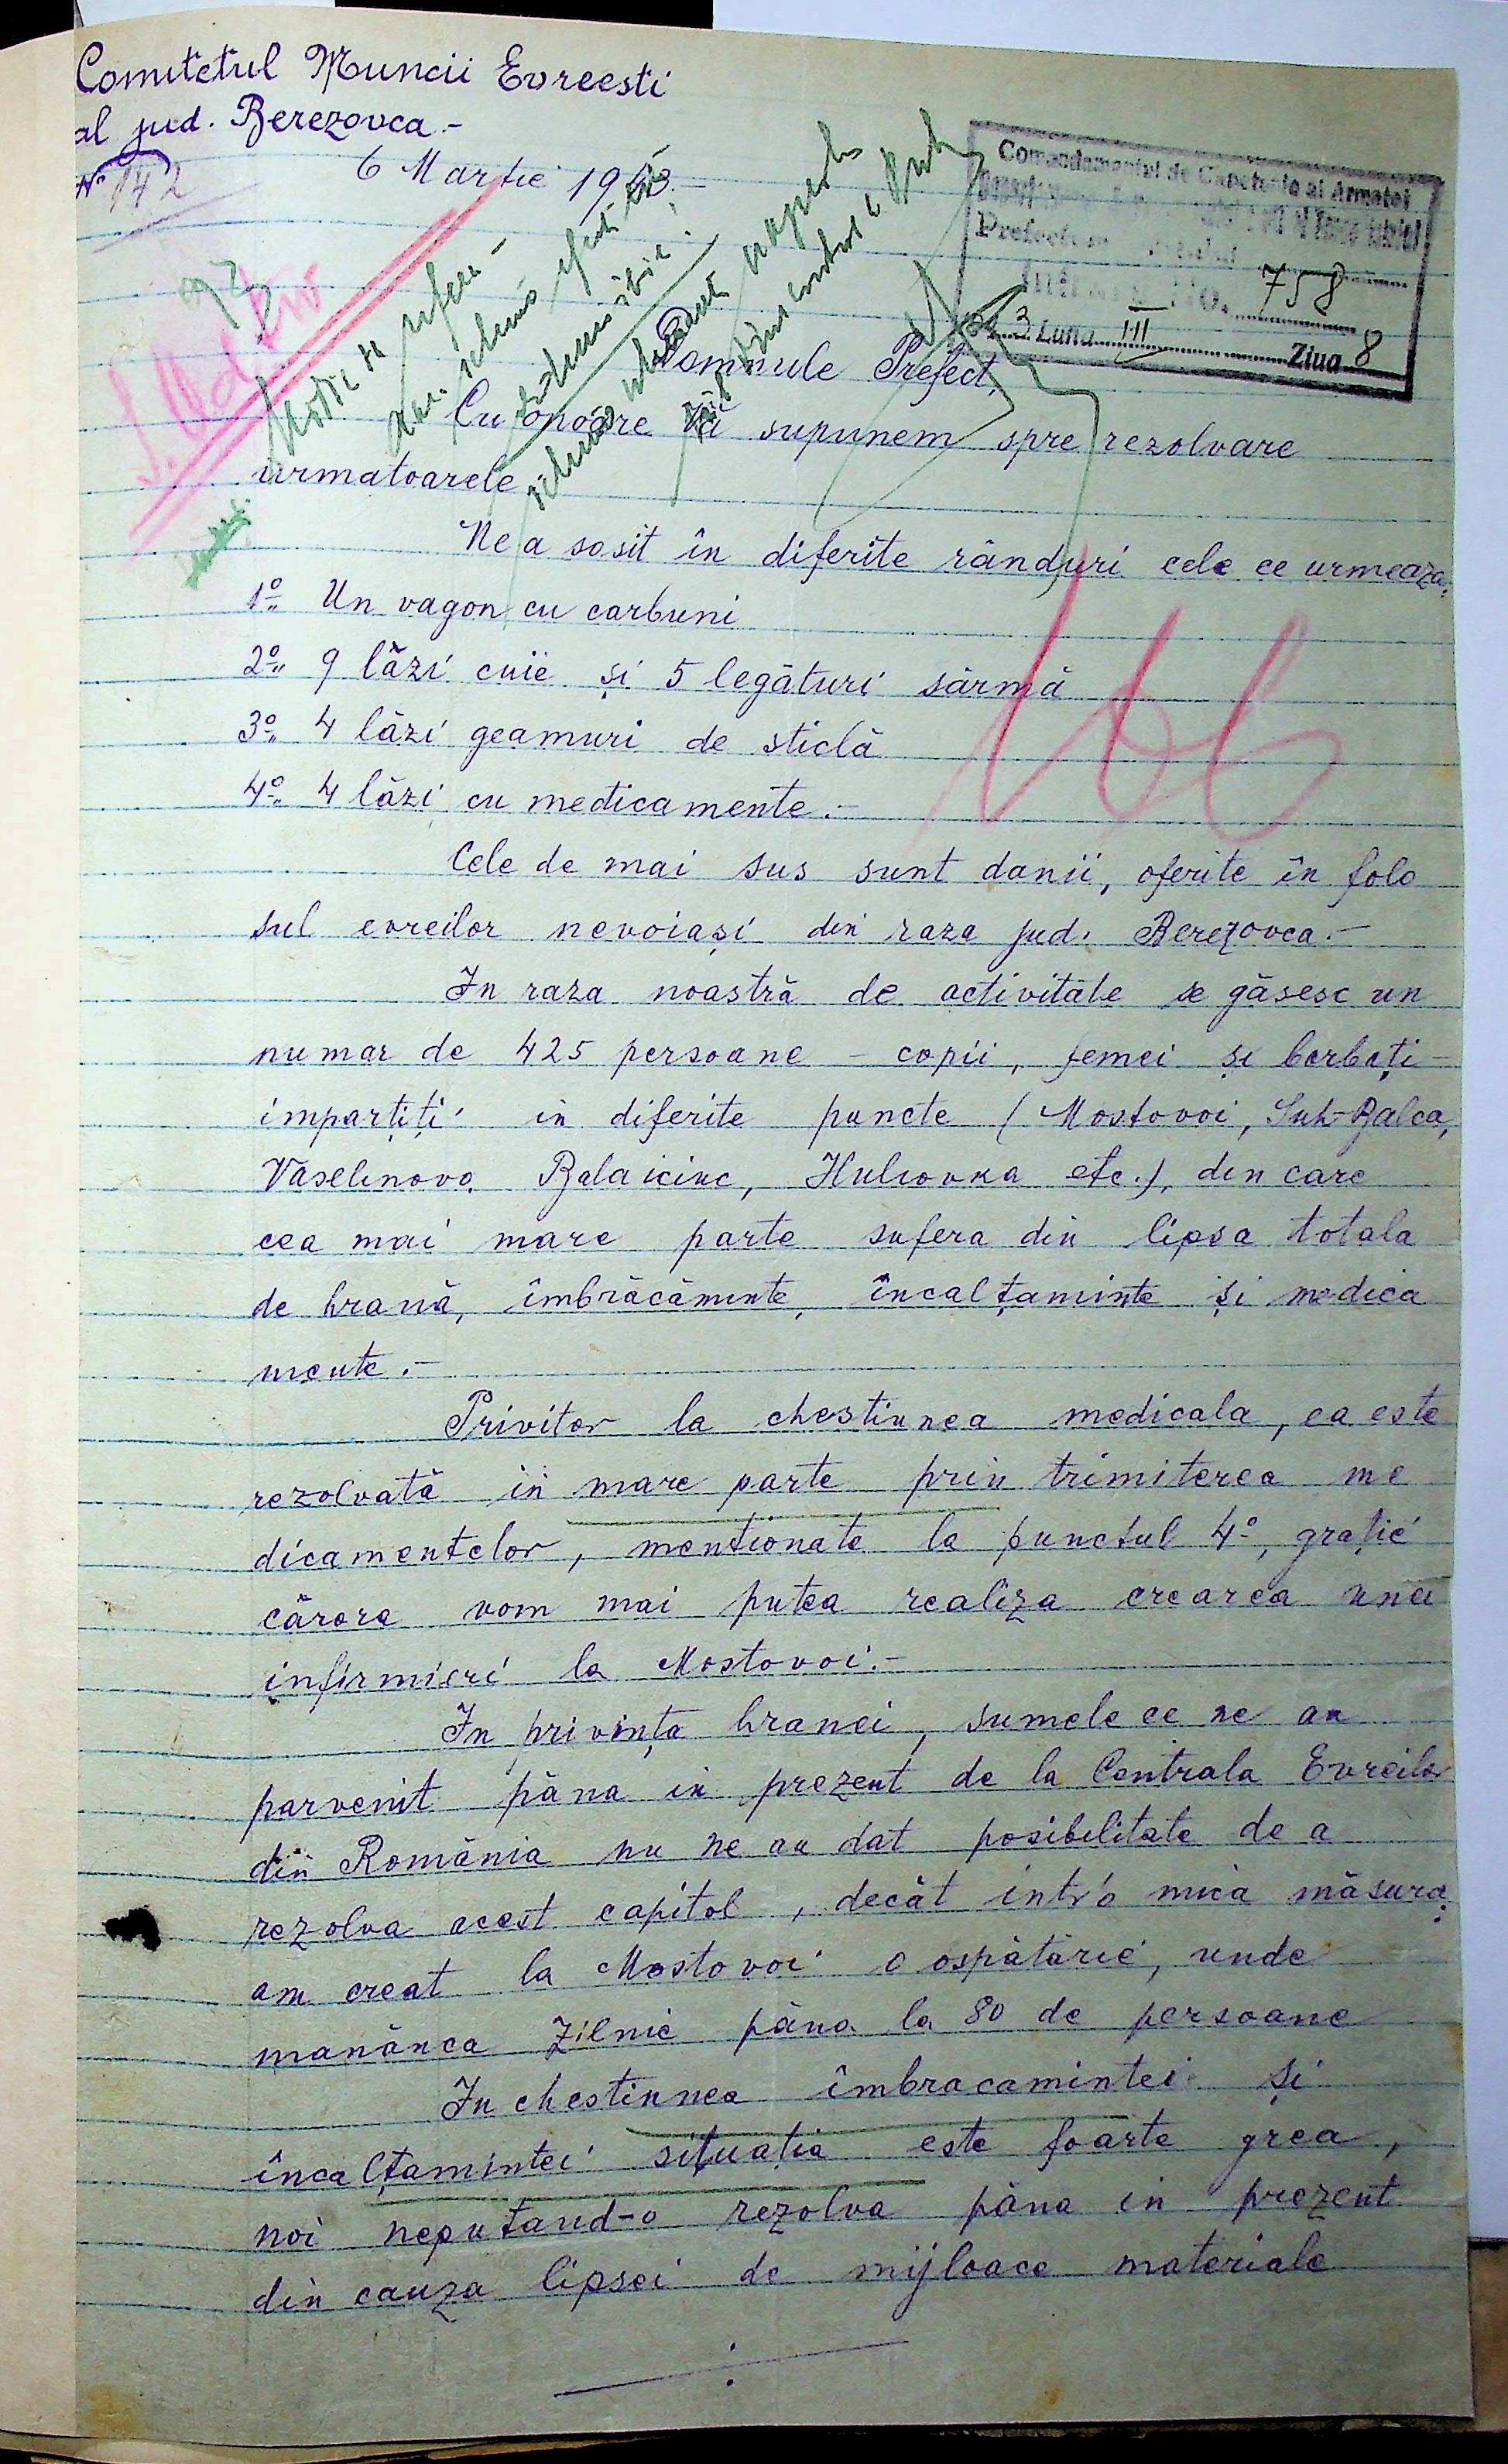 Comitetul Muncii Evreesti
al jud. Berezovca.-
No 142
6 Martie 1943.-
Comandamentul de Capetenie al Armatei
Prefectura
No. 758
194 3 Luna III Ziua 8
Domnule Prefect,
Cu onoare Vă supunem spre rezolvare
urmatoarele
Ne a sosit în diferite rânduri cele ce urmeaza:
1o Un vagon cu carbuni
2o 9 lăzi cuie și 5 legături sârmă
3o 4 lăzi geamuri de sticlă
4o 4 lăzi cu medicamente.-
Cele de mai sus sunt danii, oferite în folo
sul evreilor nevoiași din raza jud. Berezovca.-
In raza noastră de activitate se găsesc un
numar de 425 persoane - copii, femei și barbați -
imparțiți in diferite puncte (Mostovoi, Suh-Balca,
Vaselinovo, Balaiciuc, Huliovka etc.), din care
cea mai mare parte sufera din lipsa totala
de hrană, îmbrăcăminte, încalțaminte și medica
mente.-
Privitor la chestiunea medicala, ea este
rezolvată in mare parte prin trimiterea me
dicamentelor, mentionate la punctul 4o, grație
cărora vom mai putea realiza crearea unei
infirmieri la Mostovoi.-
In privința hranei, sumele ce ne au
parvenit pâna in prezent de la Centrala Evreilor
din România nu ne au dat posibilitate de a
rezolva acest capitol, decât intr'o mica măsura:
am creat la Mostovoi o ospătărie, unde
manânca zilnic pâna la 80 de persoane
In chestiunea îmbracamintei și
încalțamintei situația este foarte grea,
noi neputand-o rezolva pâna in prezent
din cauza lipsei de mijloace materiale